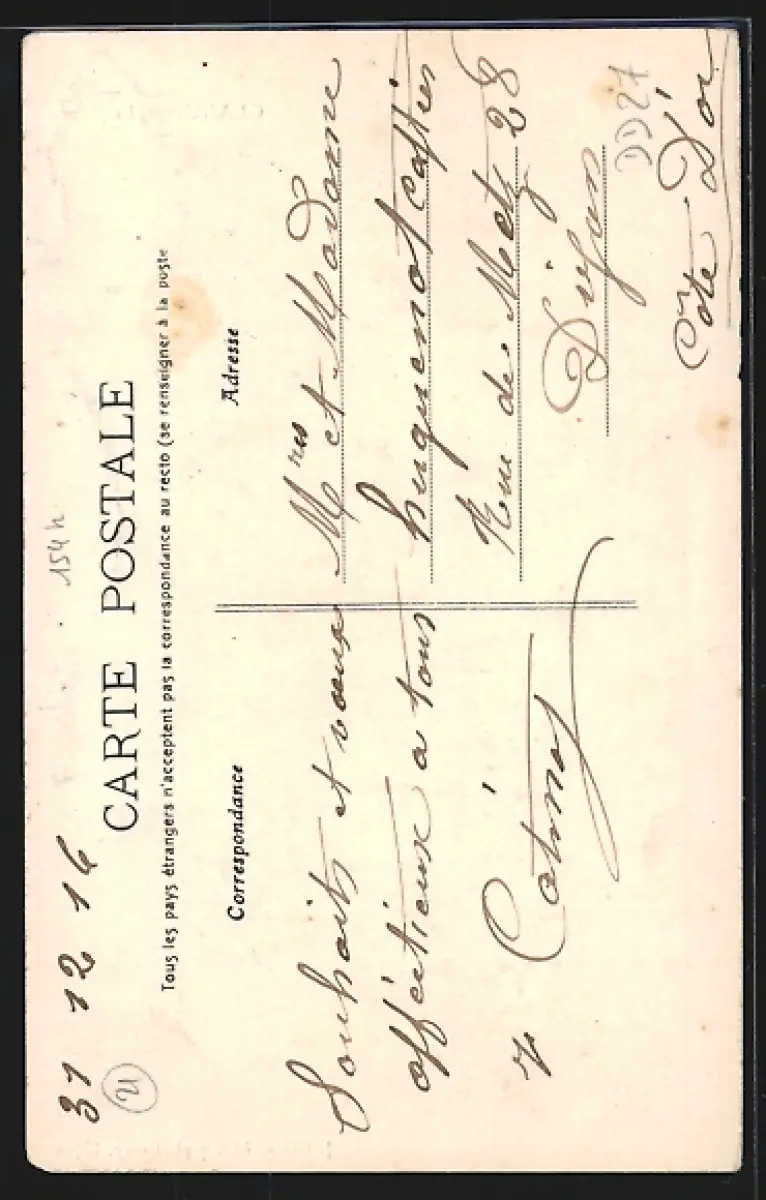 31 12 16
21
154 h
CARTE POSTALE
Tous les pays étrangers n'acceptent pas la correspondance au recto (se renseigner à la poste
Correspondance
Souhaits et vœux
afféctieux a tous
Adresse
Mres et Madame
huguenot
Rue de Metz 28
Dijon
DD27
Côte D'or